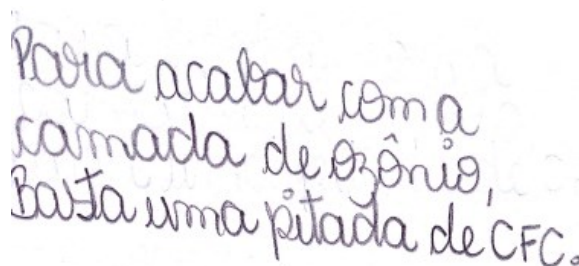 Para acabar com a
camada de ozônio,
Basta uma pitada de CFC.